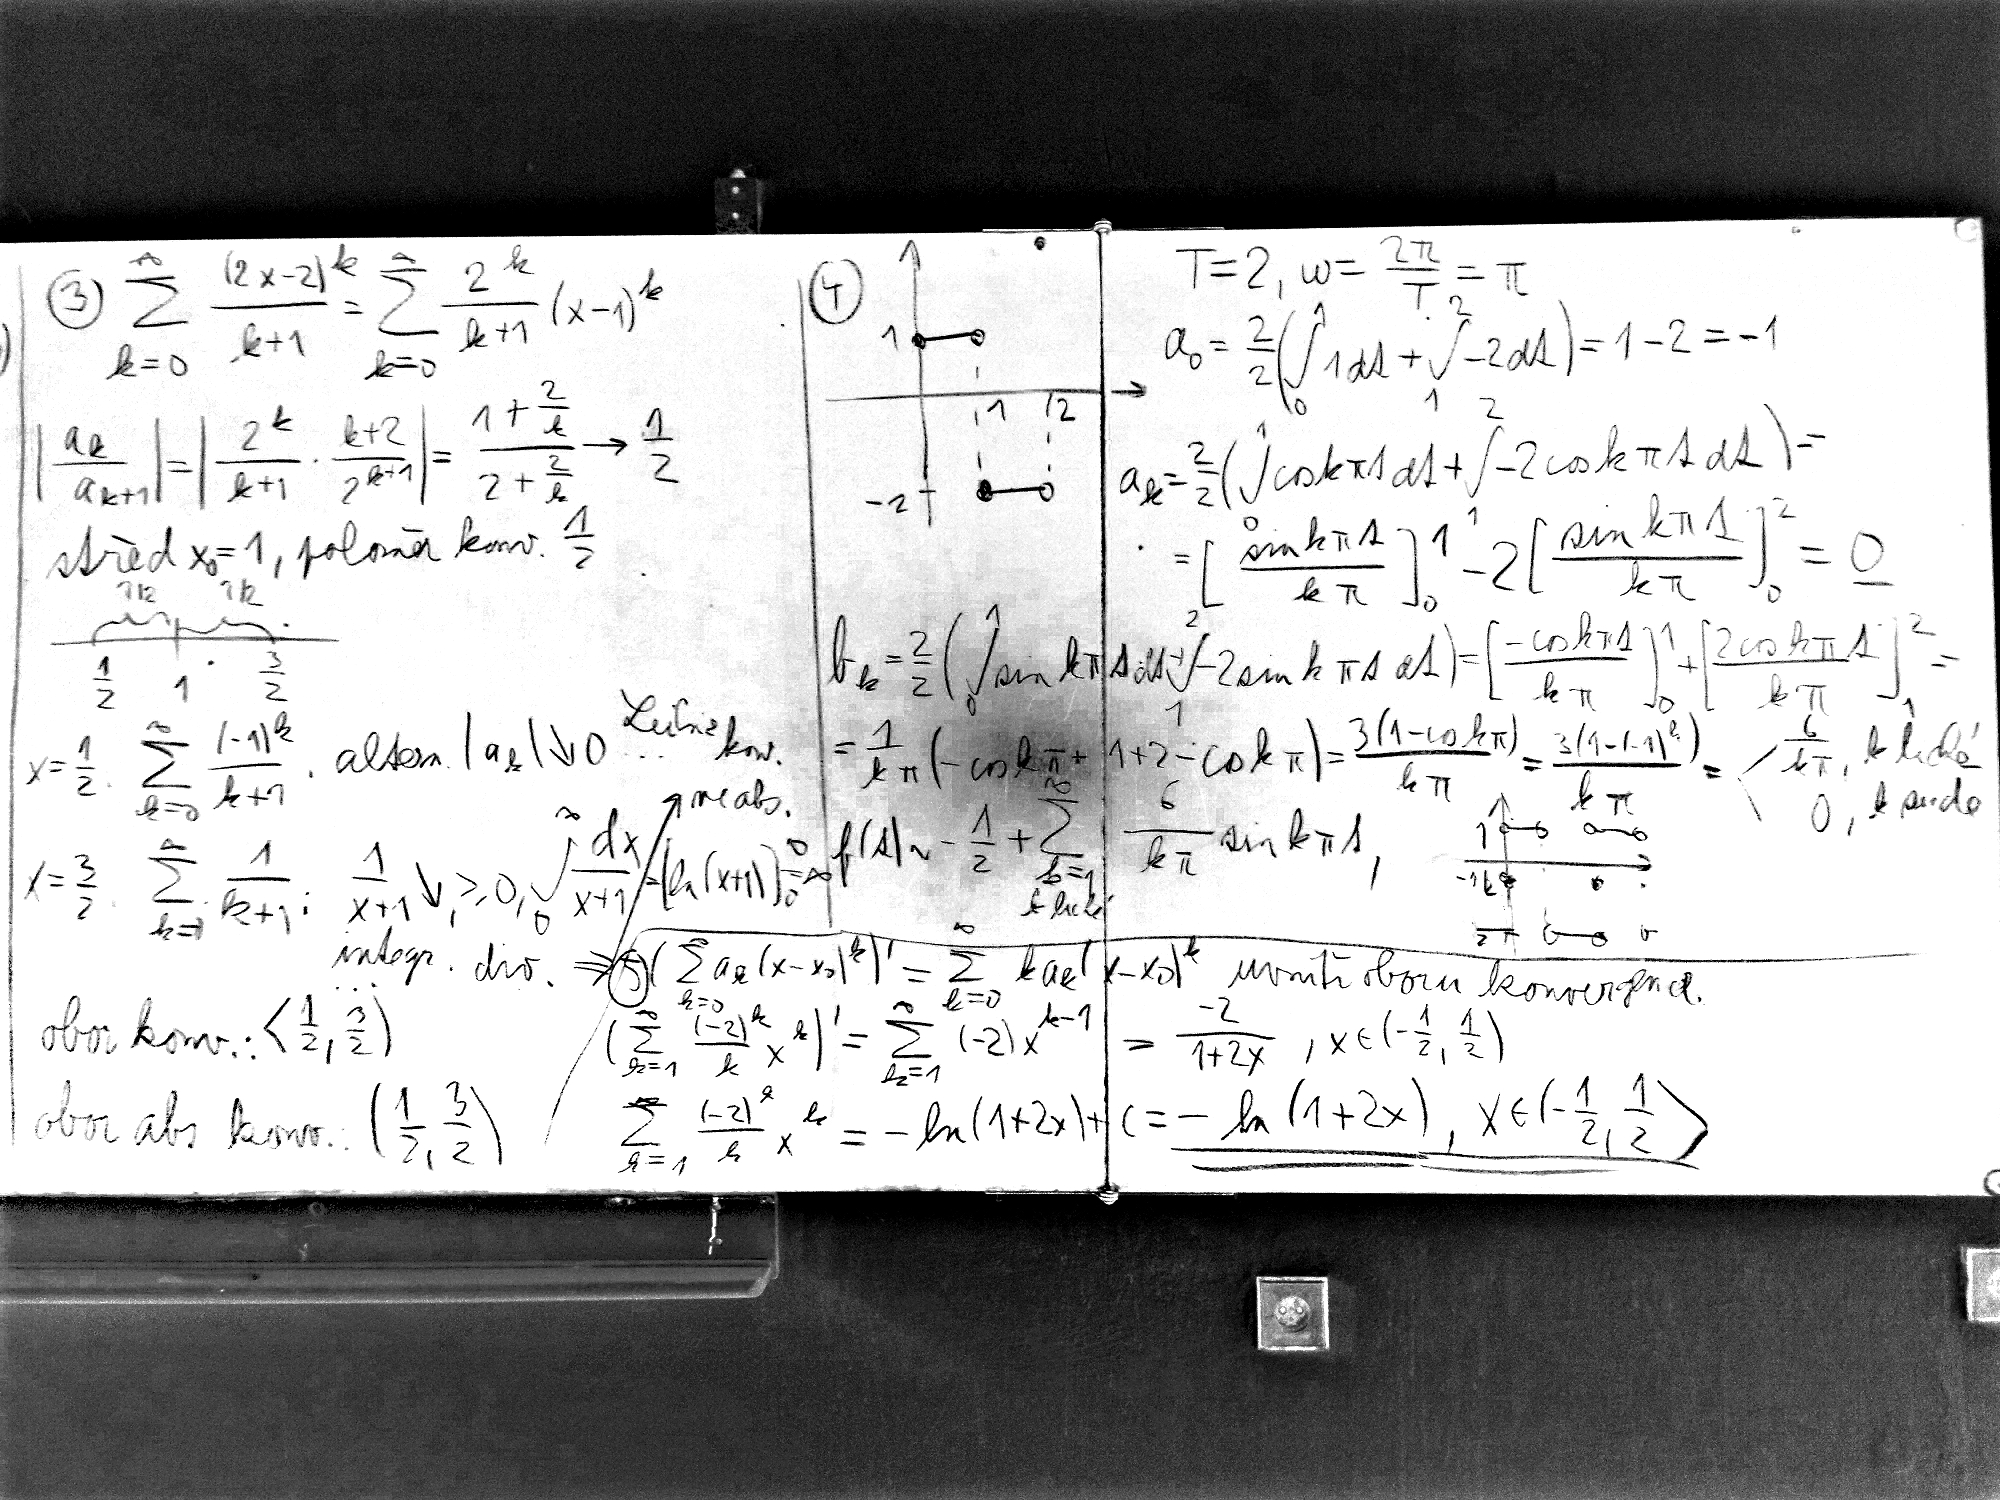 ③ ∑_{k=0}^{∞} (2x-2)^k/(k+1) = ∑_{k=0}^{∞} 2^k/(k+1) (x-1)^k
|a_k/a_{k+1}| = |2^k/(k+1) · (k+2)/2^{k+1}| = (1+2/k)/(2+2/k) → 1/2
střed x_0=1, poloměr konv. 1/2
1/2 1/2
1/2 1 3/2
x=1/2. ∑_{k=0}^{∞} (-1)^k/(k+1). altern. |a_k|↓0 ... konv.
neabs.
x=3/2. ∑ 1/(k+1): 1/(x+1) ↓, ≥0, ∫_0^∞ dx/(x+1) = [ln(x+1)]_0^∞ = ∞
integr. ... div. ⇒
obor konv.: ⟨1/2, 3/2)
obor abs konv.: (1/2, 3/2)
④ 1 1 2 -2
T=2, ω = 2π/T = π
a_0 = 2/2 (∫_0^1 1dt + ∫_1^2 -2dt) = 1-2 = -1
a_k = 2/2 (∫_0^1 cos kπt dt + ∫_1^2 -2cos kπt dt) =
= [sin kπt/kπ]_0^1 - 2[sin kπt/kπ]_0^2 = 0
b_k = 2/2 (∫_0^1 sin kπt dt + ∫_1^2 -2sin kπt dt) = [-cos kπt/kπ]_0^1 + [2cos kπt/kπ]_1^2 =
= 1/kπ (-cos kπ + 1+2-cos kπ) = 3(1-cos kπ)/kπ = 3(1-(-1)^k)/kπ = < 6/kπ, k liché
0, k sudé
f(t) ~ -1/2 + ∑_{k=1, k liché}^{∞} 6/kπ sin kπt,
⑤ (∑_{k=0}^{∞} a_k(x-x_0)^k)' = ∑_{k=0}^{∞} k a_k(x-x_0)^k uvnitř oboru konvergence.
(∑_{k=1}^{∞} (-2)^k/k x^k)' = ∑_{k=1}^{∞} (-2)x^{k-1} = -2/(1+2x), x∈(-1/2, 1/2)
∑_{k=1}^{∞} (-2)^k/k x^k = -ln(1+2x)+c = -ln(1+2x), x∈(-1/2, 1/2⟩